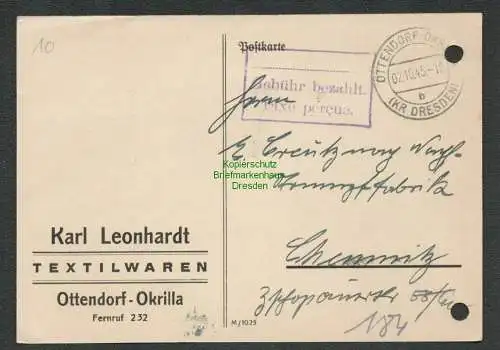 10
Postkarte
OTTENDORF-OKR
02.10.45-1
b
(KR DRESDEN)
Gebühr bezahlt.
Taxe perçue.
Herrn
Kopierschutz
Briefmarkenhaus
Dresden
E. Creutznach Nachf.
Strumpffabrik
Chemnitz
Zschopauerstr
184
Karl Leonhardt
TEXTILWAREN
Ottendorf-Okrilla
Fernruf 232
M/1025